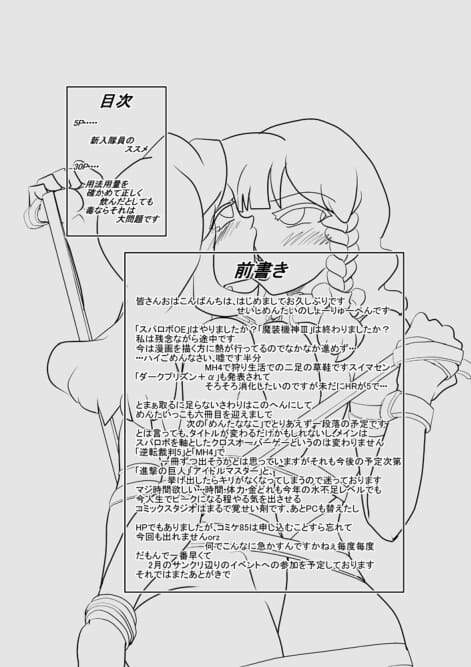 目次
5P・・・・・
新入隊員の
ススメ
30P・・・・
用法用量を
確かめて正しく
飲んだとしても
毒ならそれは
大問題です
前書き
皆さんおはこんばんちは、はじめましてお久しぶりです
せいしめんたいのしょーりゅーへんです
「スパロボOE」はやりましたか?「魔装機神Ⅲ」は終わりましたか?
私は残念ながら途中です
今は漫画を描く方に熱が行ってるのでなかなか進めず…
…ハイごめんなさい、嘘です半分
MH4で狩り生活での二足の草鞋ですスイマセン
「ダークプリズン+α」も発表されて
そろそろ消化したいのですが未だにHRが5で…
とまぁ取るに足らないさわりはこのへんにして
めんたいっこも六冊目を迎えまして
次の「めんたななこ」でとりあえず一段落の予定です
とは言っても、タイトルが変わるだけかもしれないし、メインは
スパロボを軸としたクロスオーバーゲーというのは変わりません
「逆転裁判5」と「MH4」で
一冊ずつ出そうかとは思っていますがそれも今後の予定次第
「進撃の巨人」「アイドルマスター」と、
挙げ出したらキリがなくなってしまうので迷っております
マジ時間欲しい…時間・体力・金どれも今年の水不足レベルでも
今人生でピークになる程やる気を出させる
コミックスタジオはまるで覚せい剤です、あとPCも替えたし
HPでもありましたが、コミケ85は申し込むことすら忘れて
今回も出れませんorz
何でこんなに急かすんですかねぇ毎度毎度
だもんで一番早くて
2月のサンクリ辺りのイベントへの参加を予定しております
それではまたあとがきで